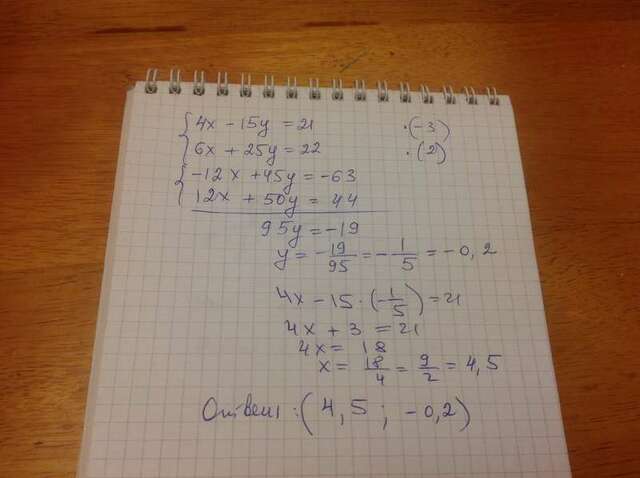 4x - 15y = 21 ·(-3)
6x + 25y = 22 ·(2)
-12x + 45y = -63
12x + 50y = 44
95y = -19
y = -19/95 = -1/5 = -0,2
4x - 15 · (-1/5) = 21
4x + 3 = 21
4x = 18
x = 18/4 = 9/2 = 4,5
Ответ: (4,5 ; -0,2)